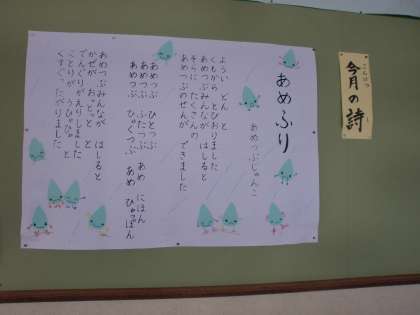 こんげつ
今月の詩
し
あめふり
あめつぶじゅんこ
ようい どん と
くもから とびおりました
あめつぶみんながはしると
そらに たくさんの
あめつぶのせんが できました
あめつぶ ひとつぶ
あめつぶ ふたつぶ あめ にほん
あめつぶ ひゃくつぶ あめ ひゃっぽん
あめつぶみんなが はしると
かぜが おっとっと と
でんぐりがえりしました
ことりが うひゃひゃ と
くすぐったがりました